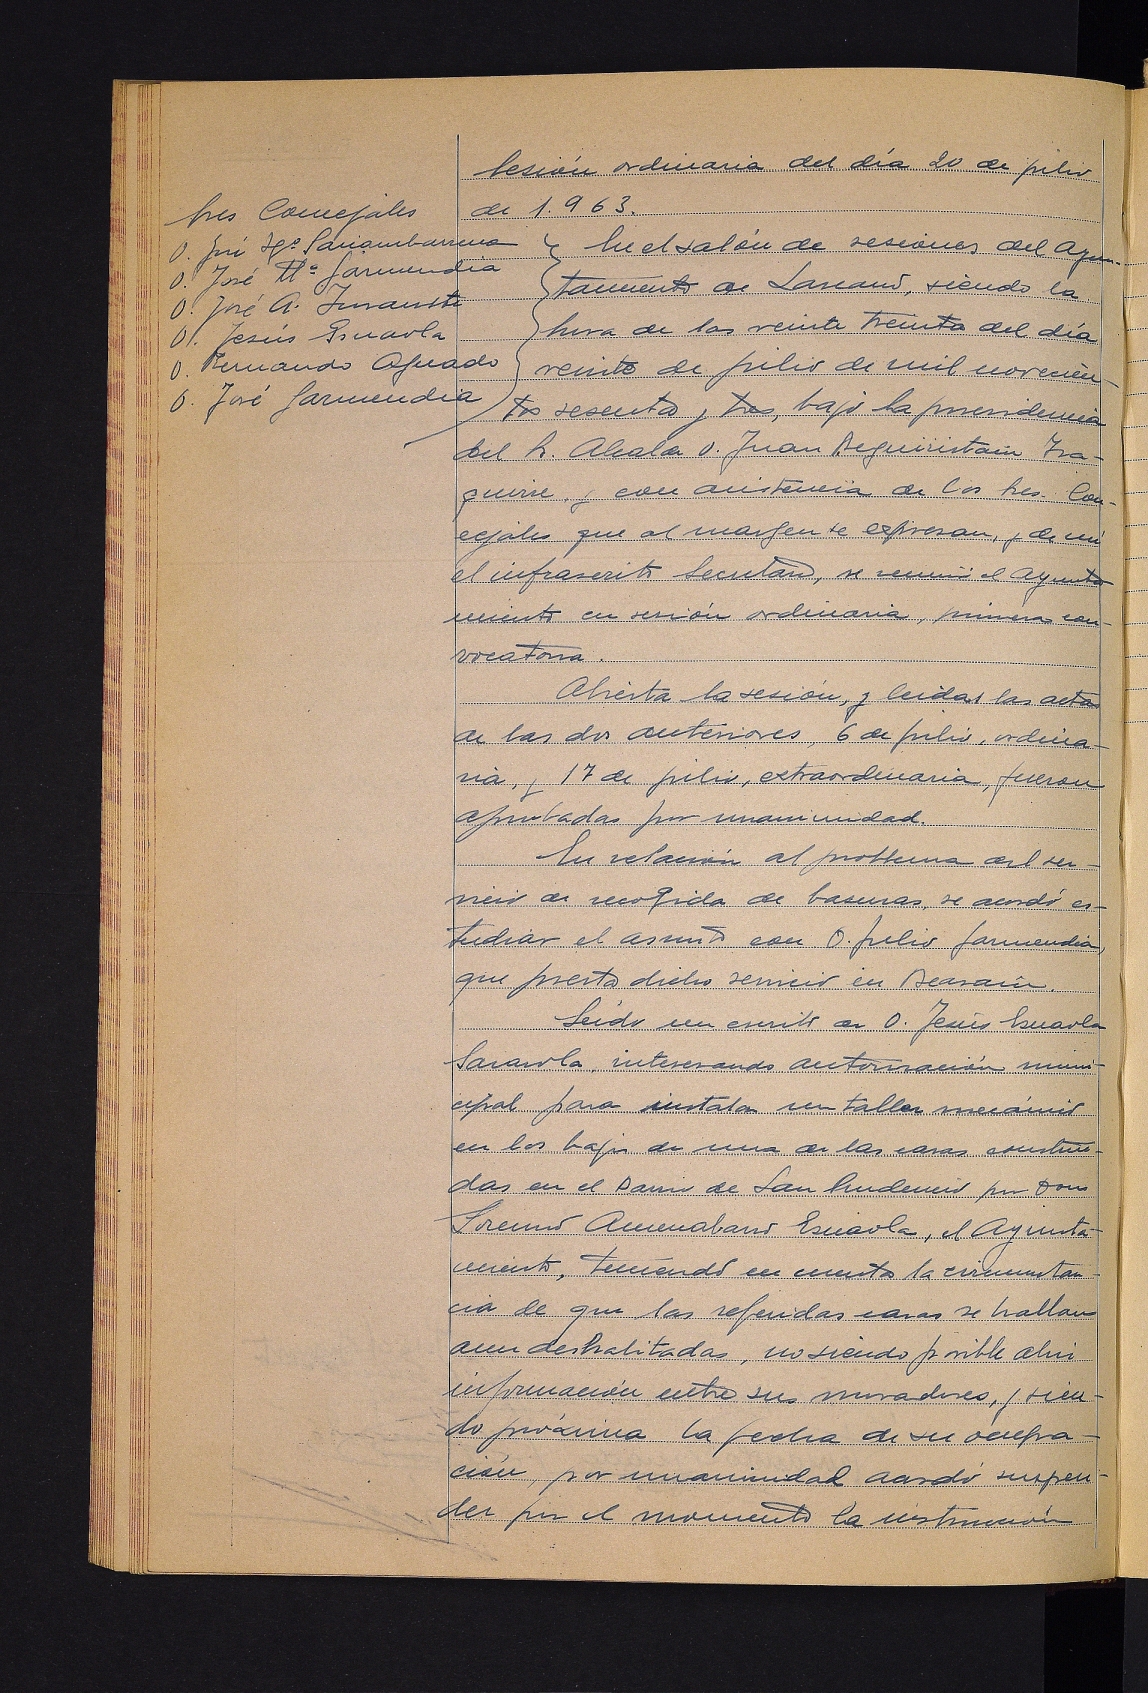 Sesión ordinaria del día 20 de julio
de 1.963.
Sres Concejales
D. José Igº Sarriambarrena
D. José Mª Garmendia
D. José A. Insausti
D. Jesús Esnaola
D. Fernando Aguado
D. José Garmendia
En el salón de sesiones del Ayun-
tamiento de Lazcano, siendo la
hora de las veinte treinta del día
veinte de julio de mil novecien-
tos sesenta y tres, bajo la presidencia
del Sr. Alcalde D. Juan Beguiristain Iza-
guirre, y con asistencia de los Sres. Con-
cejales que al margen se expresan, y de mí
el infrascrito Secretario, se reunió el Ayunta
miento en sesión ordinaria, primera con-
vocatoria.
Abierta la sesión, y leidas las actas
de las dos anteriores, 6 de julio, ordina-
ria, y 17 de julio, extraordinaria, fueron
aprobadas por unanimidad.
En relación al problema del ser-
vicio de recogida de basuras, se acordó es-
tudiar el asunto con D. Julio Garmendia,
que presta dicho servicio en Beasain.
Leido un escrito de D. Jesús Esnaola
Sarasola, interesando autorización muni-
cipal para instalar un taller mecánico
en los bajos de una de las casas construi-
das en el Barrio de San Prudencio por Don
Lorenzo Amenabarro Esnaola, el Ayunta-
miento, teniendo en cuenta la circunstan-
cia de que las referidas casas se hallan
aun deshabitadas, no siendo posible abrir
información entre sus moradores, y sien-
do próxima la fecha de su ocupa-
ción, por unanimidad acordó suspen-
der por el momento la instrucción